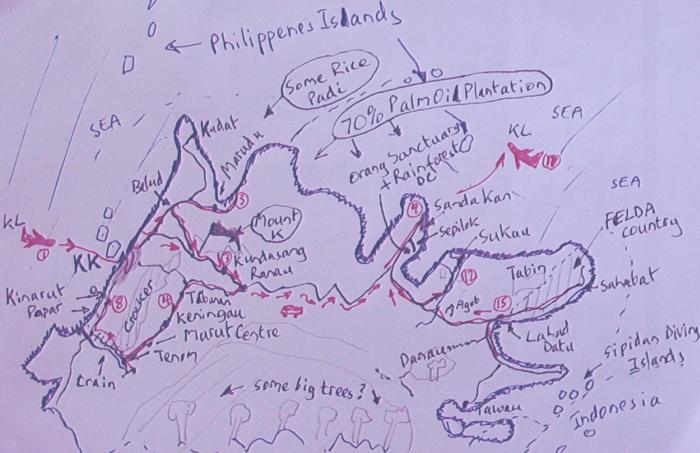 Philippenes Islands
Some Rice
Padi
70% Palm Oil Plantation
SEA
SEA
KL
Kudat
Marudu
Orang Sanctuary
+ Rainforest
DC
Belud
SEA
③
Mount
K
⑨
Sandakan
Sepilok
FELDA
country
KL
①
KK
Kundasang
Ranau
Sukau
Tabin
Sahabat
Kinarut
Papar
⑧
Crocker
Keningau
Marut Centre
Agob
⑮
Tenom
train
Danau
Lahad
Datu
Sipidan Diving
Islands
some big trees?
Tawau
Indonesia